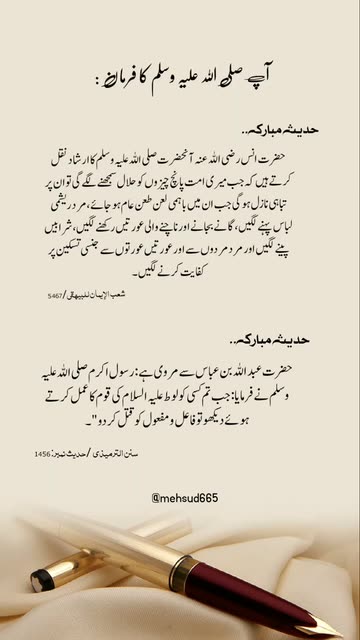 آپ صلی اللہ علیہ وسلم کا فرمان :
حدیث مبارکہ..
حضرت انس رضی اللہ عنہ آنحضرت صلی اللہ علیہ وسلم کا ارشاد نقل
کرتے ہیں کہ جب میری امت پانچ چیزوں کو حلال سمجھنے لگے گی تو ان پر
تباہی نازل ہوگی جب ان میں باہمی لعن طعن عام ہو جائے، مرد ریشمی
لباس پہننے لگیں، گانے بجانے اور ناچنے والی عورتیں رکھنے لگیں، شرابیں
پینے لگیں اور مرد مردوں سے اور عورتیں عورتوں سے جنسی تسکین پر
کفایت کرنے لگیں۔
شعب الإيمان للبيهقي/5467
حدیث مبارکہ..
حضرت عبد اللہ بن عباس سے مروی ہے: رسول اکرم صلی اللہ علیہ
وسلم نے فرمایا: جب تم کسی کو لوط علیہ السلام کی قوم کا عمل کرتے
ہوئے دیکھو تو فاعل و مفعول کو قتل کر دو"۔
سنن الترمیذی /حدیث نمبر: 1456
@mehsud665